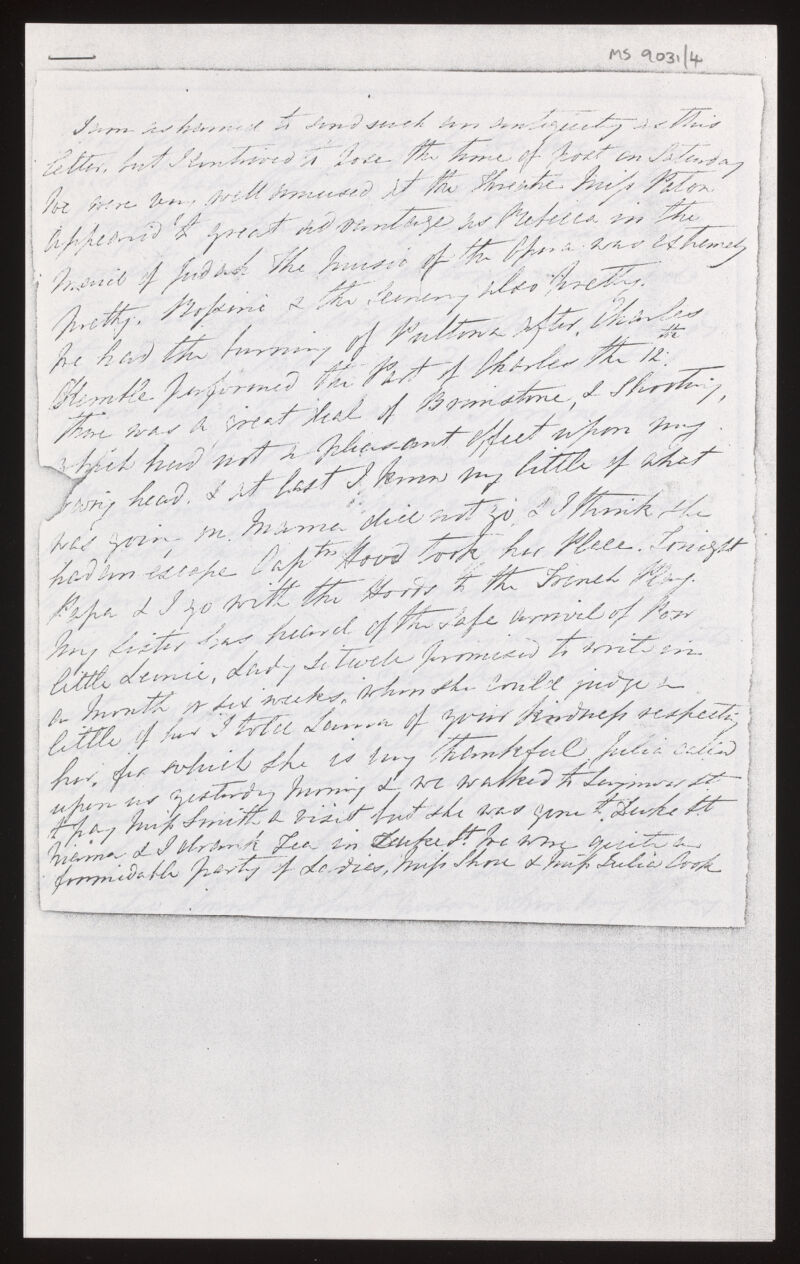 MS 9031/4
I am ashamed to send such an antiquity as this
letter, but I contrived to lose the time of post on Saturday
We were very well amused at the Theatre Miss Paton
appeared to great advantage as Rebecca in the
Maid of Judah The Music of the Opera was extremely
pretty. Rossini & the Scenery also pretty.
We had the burning of Pultowa after, Charles
Kemble performed the Part of Charles the 12th.
there was a great deal of Brimstone, & Shooting,
which had not a pleasant effect upon my
head. & at last I knew very little of what
was going on. Mama did not go, & I think she
had an escape Captn Hood took her Place. Tonight
Papa & I go with the Hoods to the French Play.
My Sister has heard of the safe arrival of Poor
little , Lady Sitwell promised to write in
a Month or six weeks. when she could judge a
little of her I told Laura of your kindness respecting
her, for which she is very thankful Julia called
upon us yesterday Morning & we walked to Seymour St
to pay Miss Smith a visit but she was gone to Duke St
Mama & I drank Tea in Duke St. We were quite a
formidable party of Ladies, Miss Shore & Miss Julia Cook